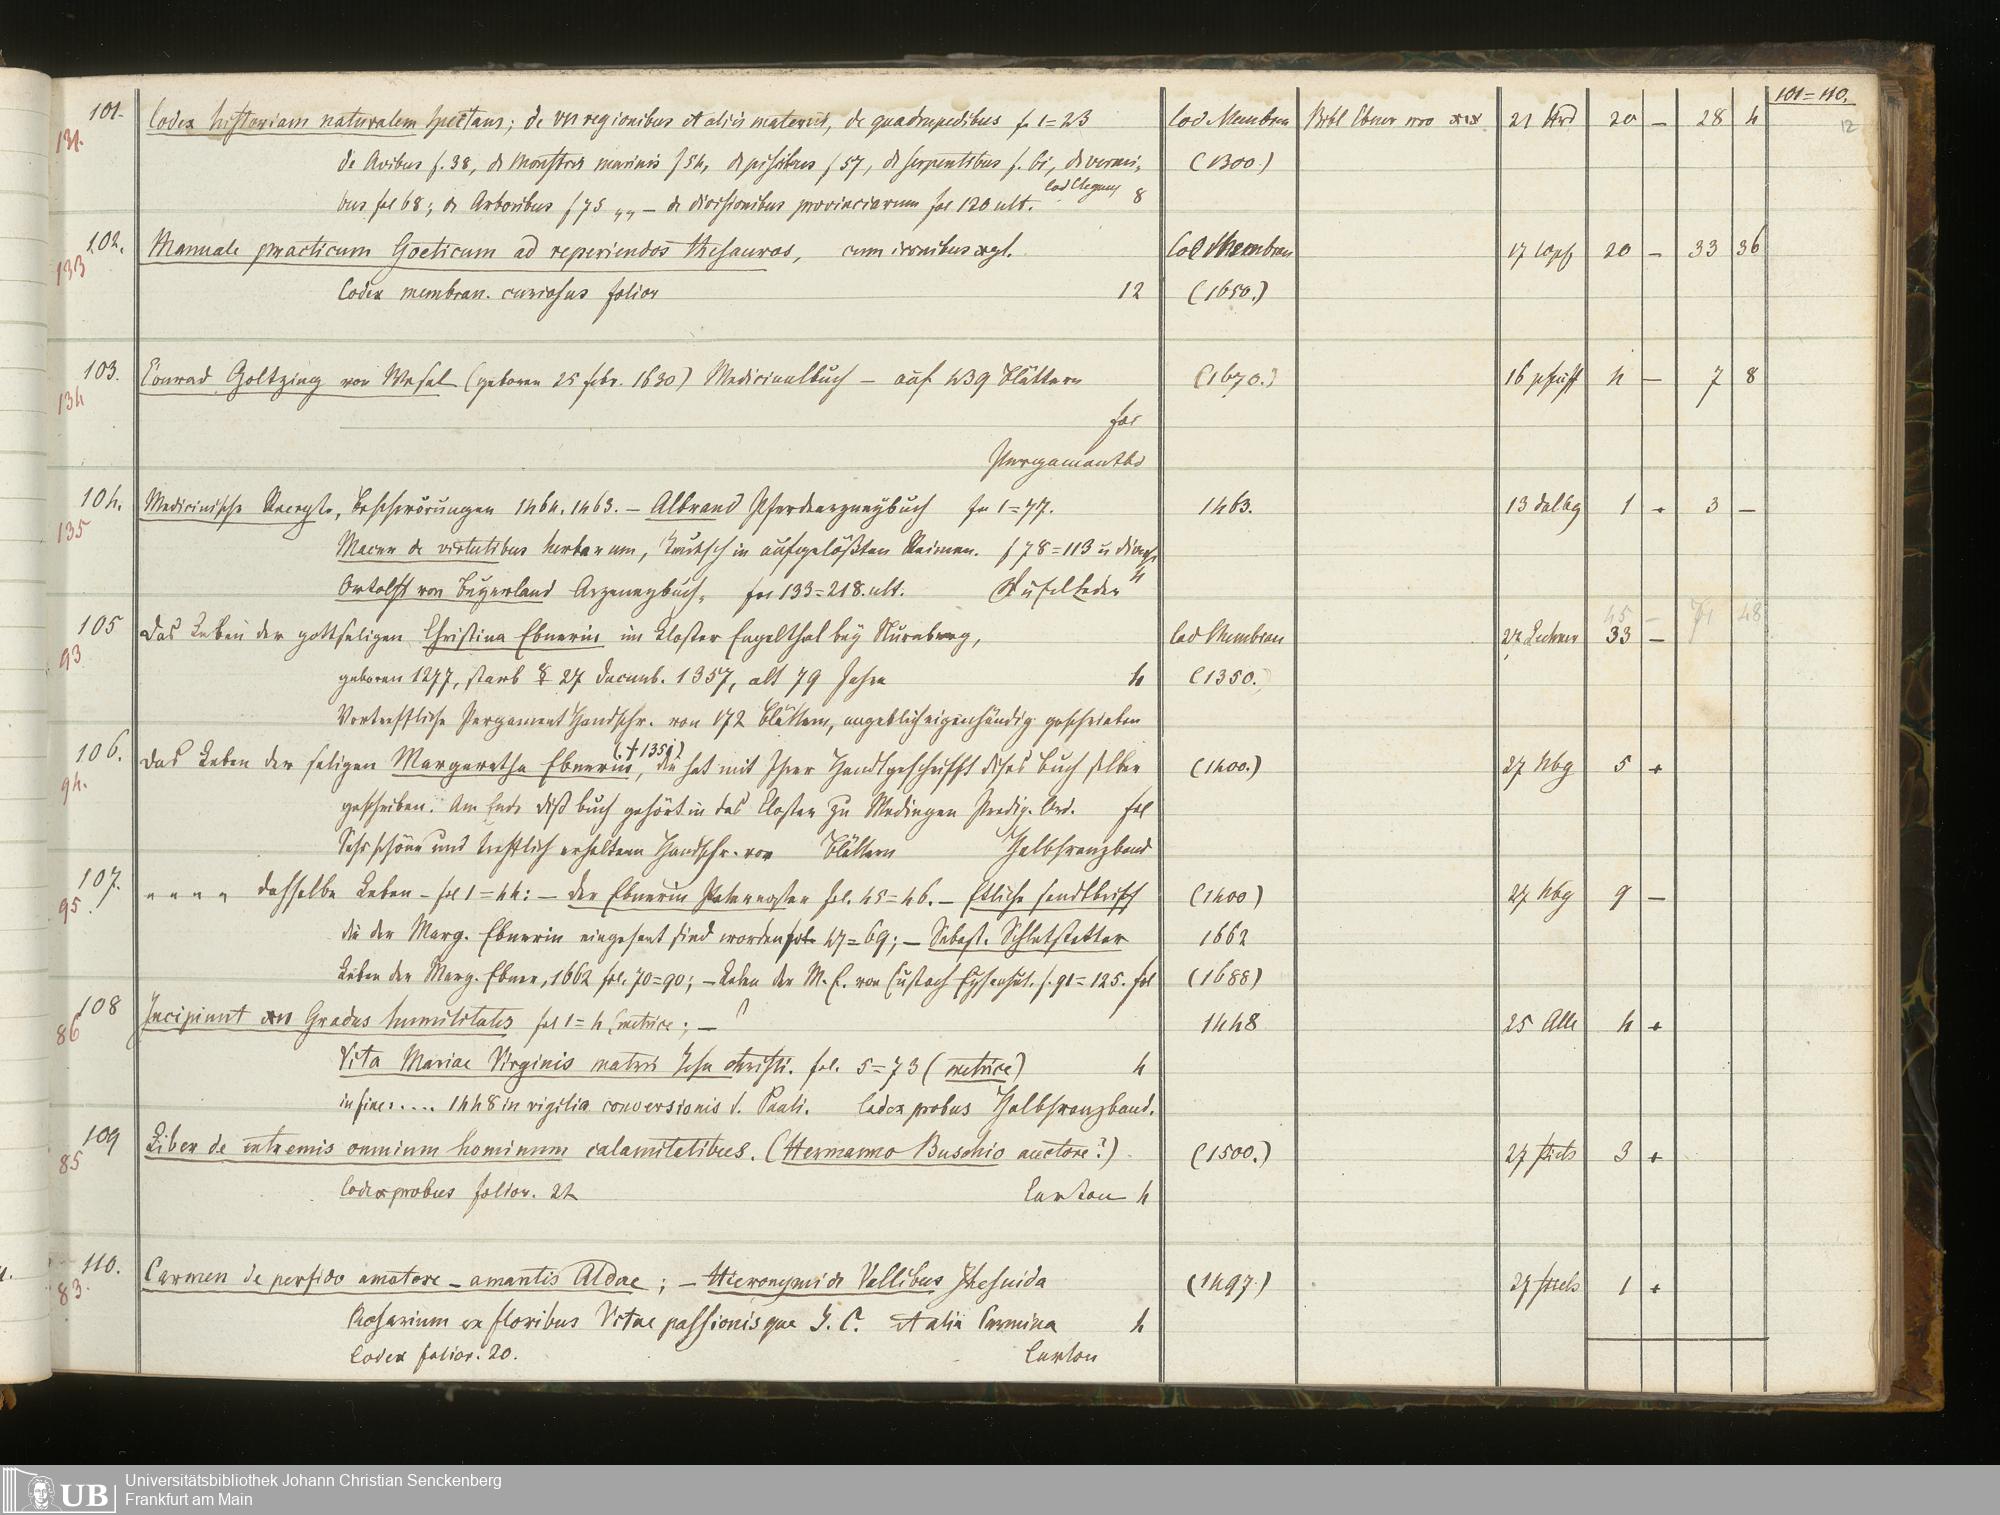 101=110.
12
101. Codex historiam naturalem spectans; de regionibus et aliis materiis, de quadrupedibus f 1=23 Cod Membran Bibl Ebner nro xix 21 20 — 28 4
131.
de Avibus f. 38, de Monstris marinis f 54, de piscibus f 57, de serpentibus f. 61, de vermi- (1300.)
bus fol 68; de Arboribus f 75 „„ — de divisionibus provinciarum fol 120 ult. Cod Elegans 8
102. Manuale practicum Goeticum ad reperiendos thesauros, cum iconibus Cod Membran 17 20 — 33 36
133
Codex membran. curiosus folior 12 (1650.)
103. Conrad Goltzing von Wesel (geboren 25 febr. 1630) Medicinalbuch — auf 439 Blättern (1670.) 16 4 — 7 8
134
fol
Pergamentbd
104. Medicinische Recepte, Beschwörungen 1464. 1463. — Albrand Pferdearzneybuch fol 1=77. 1463. 13 dalbg 1 + 3 —
135
Macer de virtutibus herbarum, Teutsch in aufgelößten Reimen. f 78=113 u
Ortolff von Beyerland Arzeneybuch, fol 133=218. ult. 4
105 Das Leben der gottseligen Christina Ebnerin im Closter Engelthal bey Nürnberg, Cod Membran 27 Lechner 33 —
45 — 71 48
93
geboren 1277, starb 27 Decemb. 1357, alt 79 Jahre 4 (1350.)
Vortreffliche Pergament Handschr. von 172 Blättern, angeblich eigenhändig geschrieben
106. Das Leben der seligen Margaretha Ebnerin (†1351), die hat mit Ihrer Handtgeschrifft dises buch selber (1400.) 27 Nbg 5 +
94.
geschriben. Am Ende diß buch gehört in das Closter zu Medingen Predig. Ord. fol
Sehr schöne und trefflich erhaltene Handschr. von Blättern Halbfranzband
107. „ „ „ „ dasselbe Leben — fol 1=44: — der Ebnerin Paternoster fol. 45=46. — Etliche sendtbrieff (1400) 27 Nbg 9 —
95.
die der Marg. Ebnerin eingesant sind worden fol 47=69; — Sebast. Schletstetter 1662
Leben der Marg. Ebner, 1662 fol. 70=90; — Leben der M. E. von Eustach Eysenhut. f. 91=125. fol (1688)
108 Incipiunt xii Gradus humilitatis fol 1=4 (metrice; — 1448 25 Alle 4 +
86
Vita Mariae Virginis matris Jesu christi. fol. 5=73 (metrice) 4
in fine: .... 1448 in vigilia conversionis S. Pauli. Codex probus Halbfranzband.
109 Liber de extremis omnium hominum calamitatibus. (Hermanno Buschio auctore?) (1500.) 27 3 +
85
Codex probus folior. 22 Carton 4
110. Carmen de perfido amatore — amantis Aldae; — Hieronymi de Vallibus Jhesuida (1497.) 27 1 +
83.
Rosarium ex floribus Vitae passionisque J. C. et alia Carmina 4
Codex folior. 20. Carton
UB Universitätsbibliothek Johann Christian Senckenberg
Frankfurt am Main